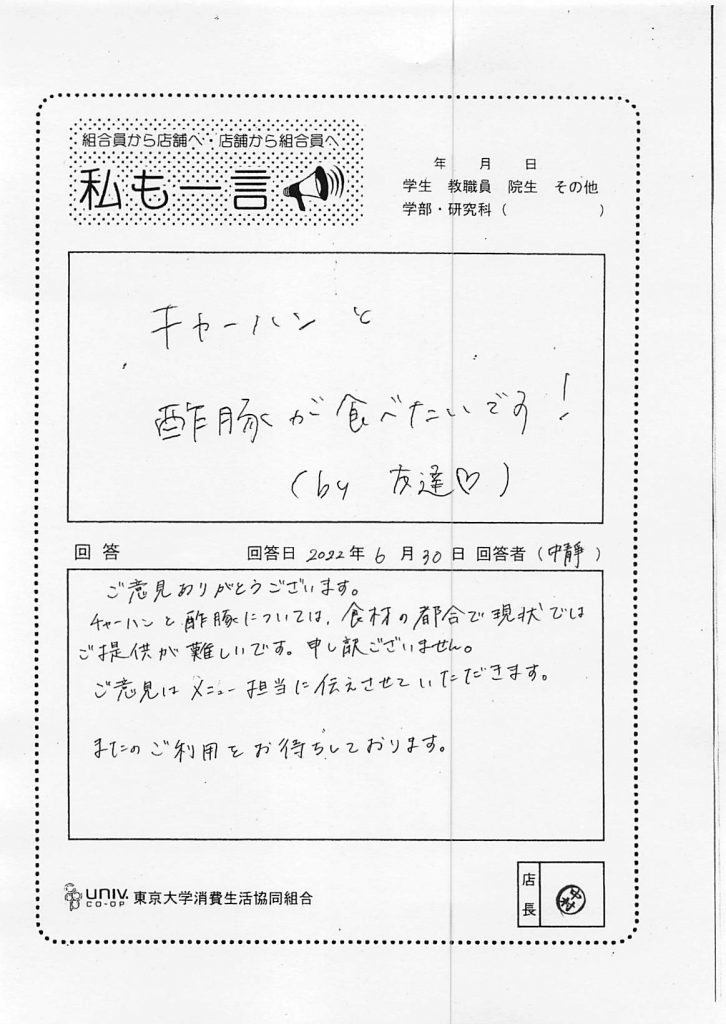 組合員から店舗へ・店舗から組合員へ
私も一言
年 月 日
学生 教職員 院生 その他
学部・研究科( )
チャーハンと
酢豚が食べたいです!
(by 友達♡)
回答 回答日 2022年 6月 30日 回答者(中静)
ご意見ありがとうございます。
チャーハンと酢豚については、食材の都合で現状では
ご提供が難しいです。申し訳ございません。
ご意見はメニュー担当に伝えさせていただきます。
またのご利用をお待ちしております。
UNIV. CO-OP 東京大学消費生活協同組合
店長